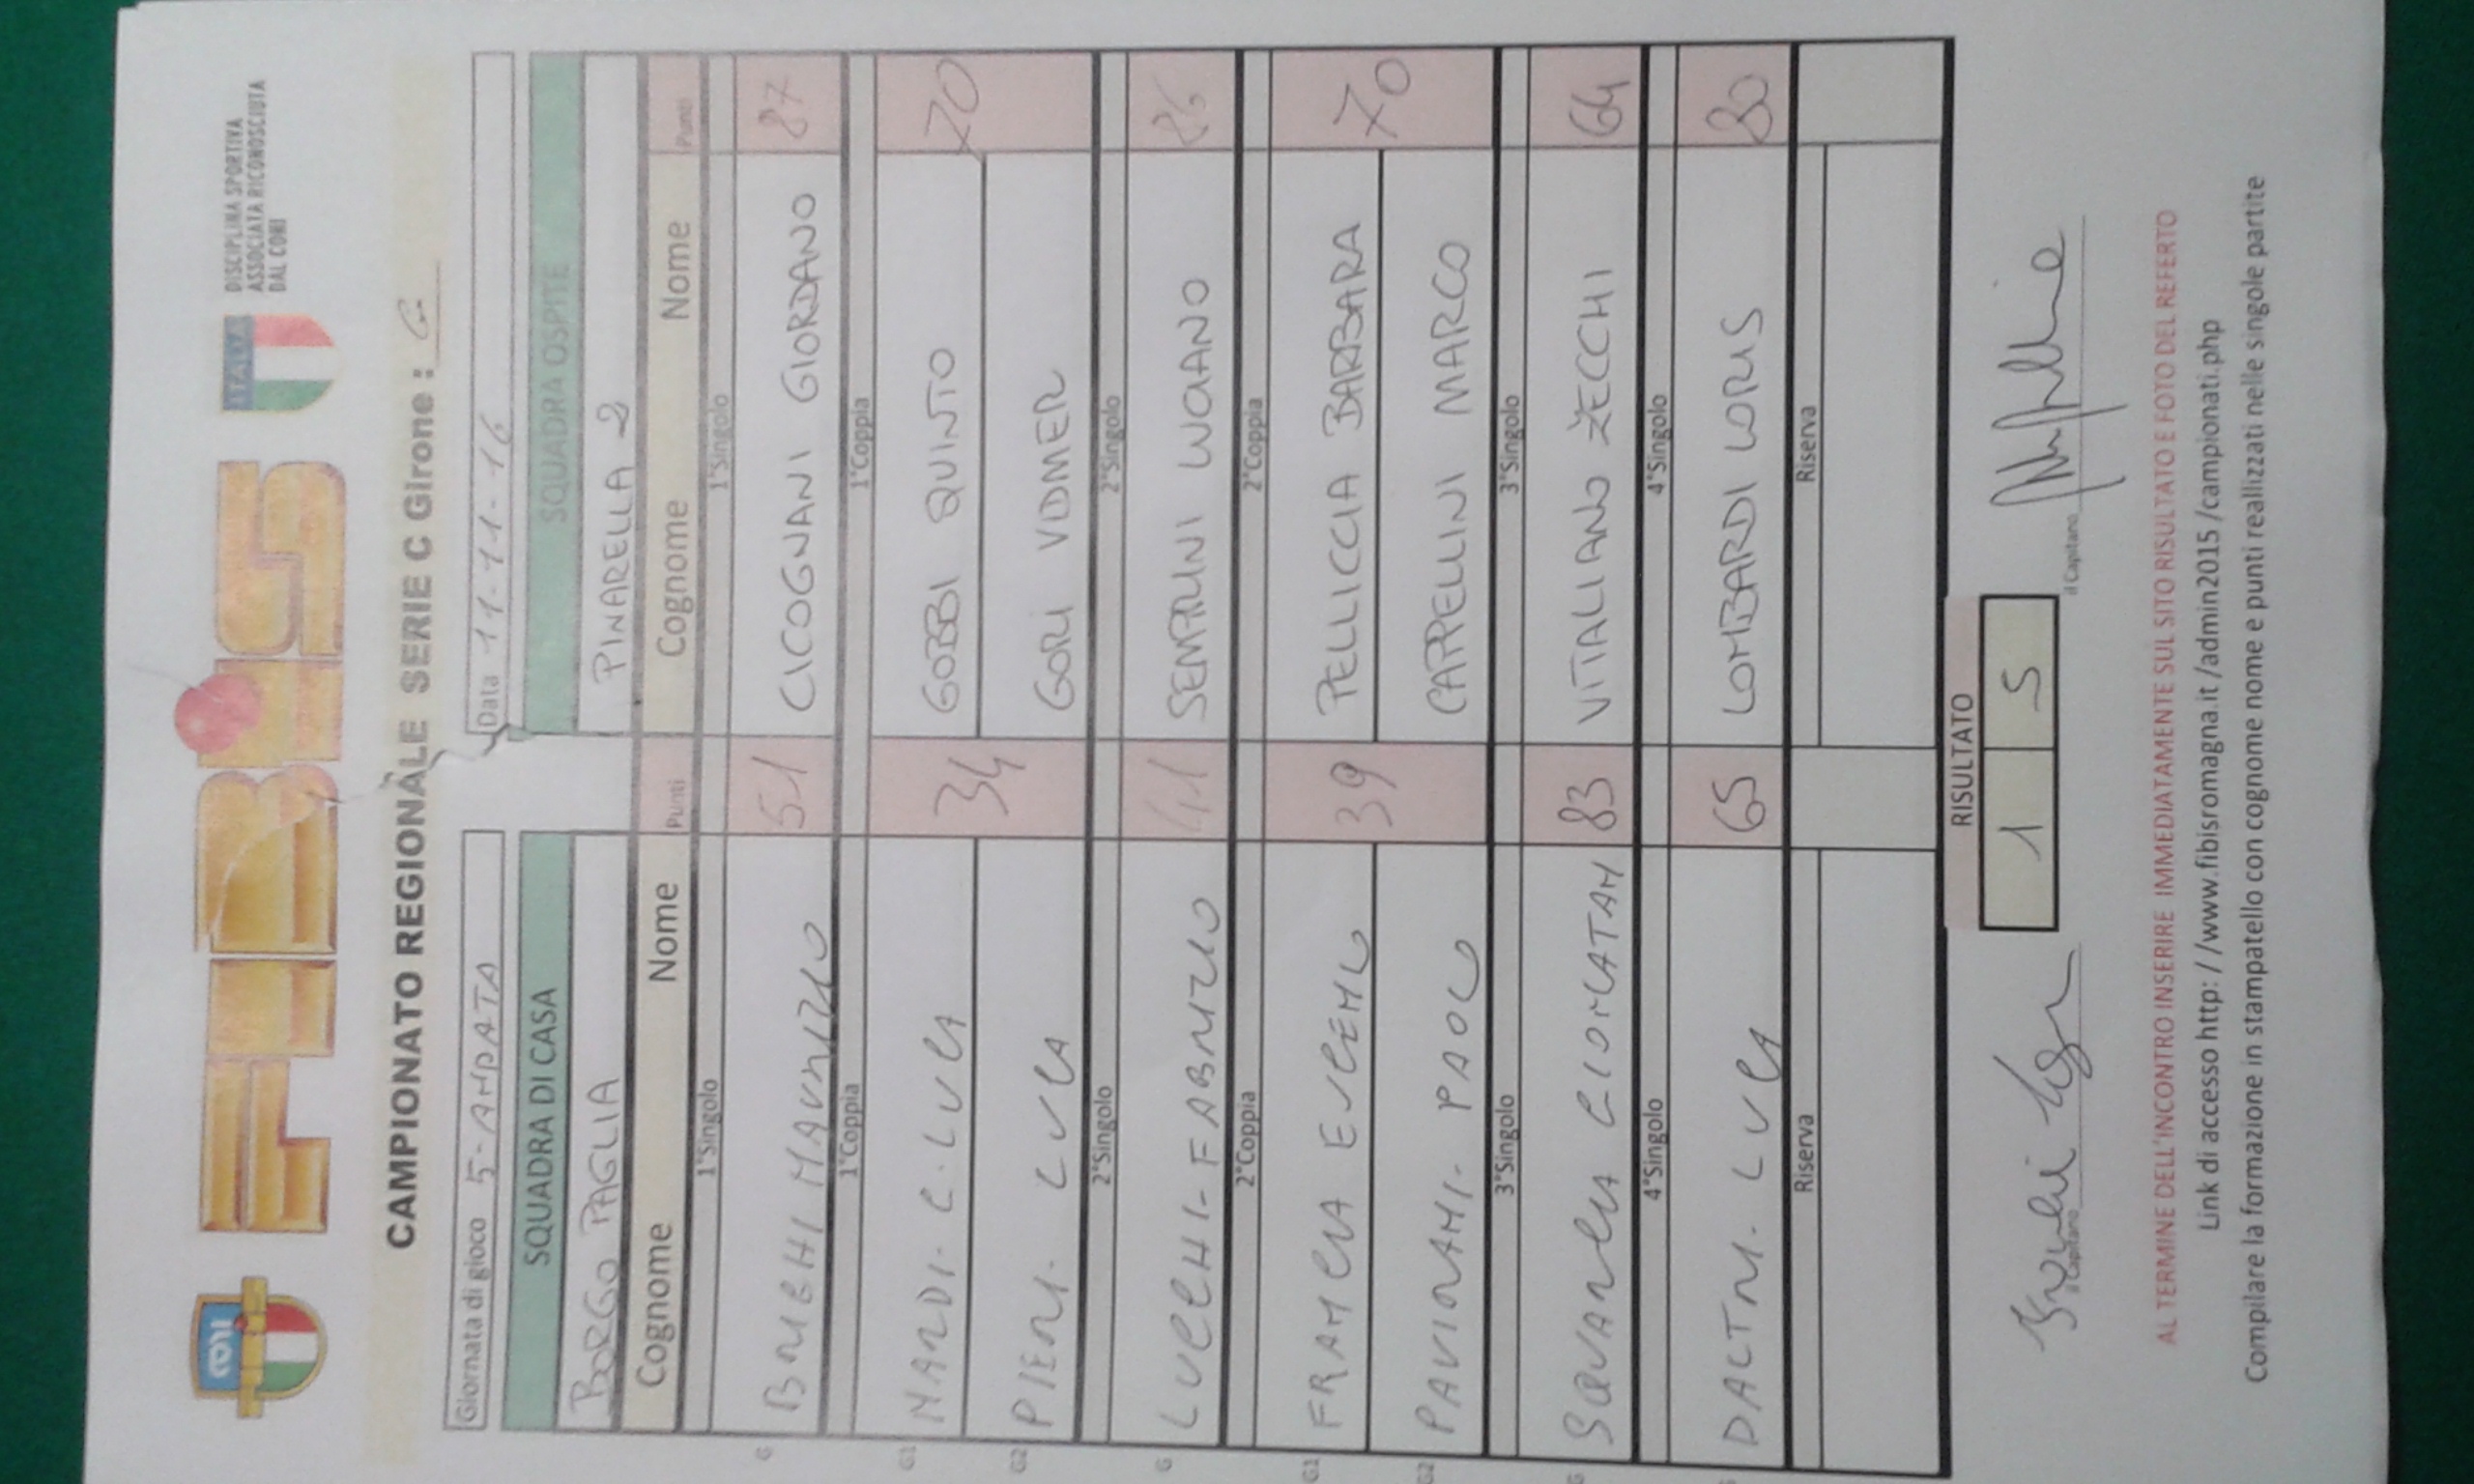 CONI
FIBIS
ITALY
DISCIPLINA SPORTIVA
ASSOCIATA RICONOSCIUTA
DAL CONI
CAMPIONATO REGIONALE SERIE C Girone : G
Giornata di gioco 5-ANDATA Data 11-11-16
SQUADRA DI CASA SQUADRA OSPITE
BORGO PAGLIA PINARELLA 2
Cognome Nome Punti Cognome Nome Punti
1°Singolo 1°Singolo
G 51 CICOGNANI GIORDANO 87
1°Coppia 1°Coppia
G1 LUCA 34 GOBBI QUINTO 70
G2 PIERI. LUCA GORI VIDMER
2°Singolo 2°Singolo
G LUCCHI-FABRIZIO 41 SEMPRINI LUCIANO 86
2°Coppia 2°Coppia
G1 39 PELLICCIA BARBARA 70
G2 PAOLO CAPPELLINI MARCO
3°Singolo 3°Singolo
G 83 VITALIANO ZECCHI 64
4°Singolo 4°Singolo
LUCA 65 LOMBARDI LORIS 80
Riserva Riserva
RISULTATO
1 5
il Capitano il Capitano
AL TERMINE DELL'INCONTRO INSERIRE IMMEDIATAMENTE SUL SITO RISULTATO E FOTO DEL REFERTO
Link di accesso http: //www.fibisromagna.it /admin2015 /campionati.php
Compilare la formazione in stampatello con cognome nome e punti reallizzati nelle singole partite